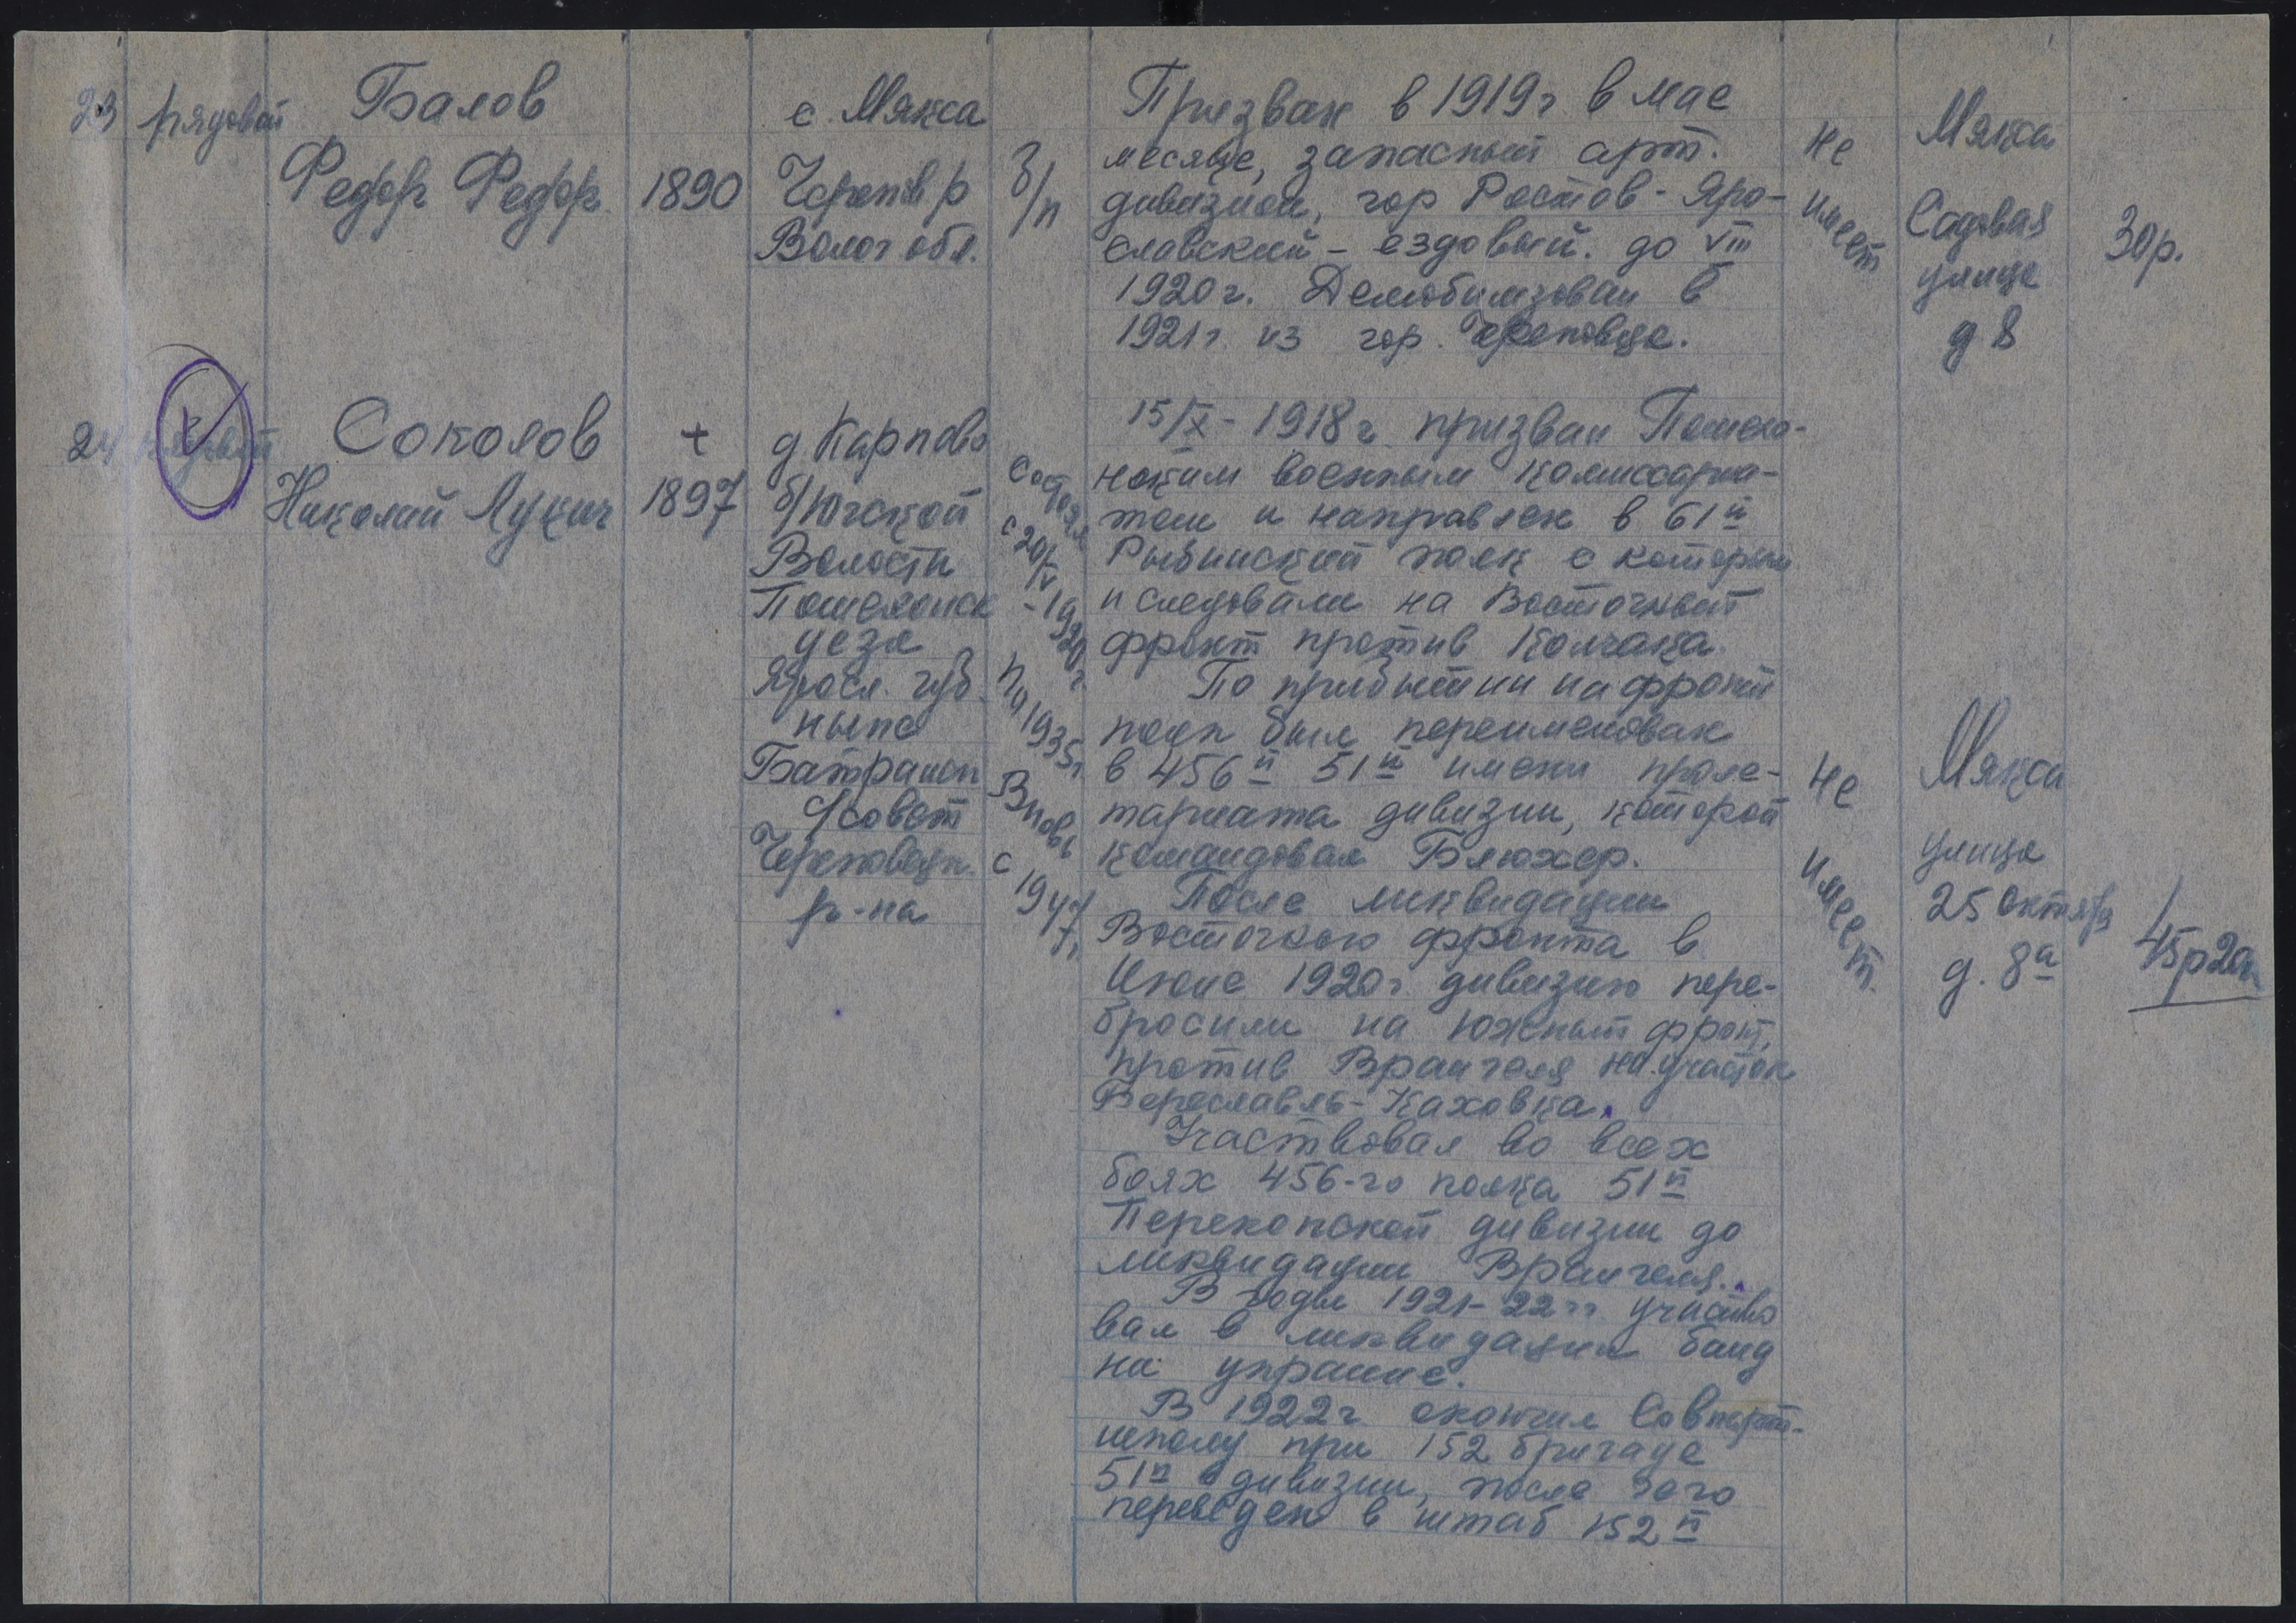 23
рядовой
Балов
Федор Федор.
1890
с. Мякса
Череповр
Волог обл.
б/п
Призван в 1919г в мае
месяце, запасный арт.
дивизион, гор Ростов - Яро-
славский - ездовый. до VIII
1920г. Демобилизован в
1921г из гор. Череповца.
не
имеет
Мякса
Садовая
улица
д 8
30р.
24
рядовой
Соколов
Николай Лукич
+
1897
д Карпово
б/Югской
Волости
Пошехонск
уезд
Яросл. губ.
ныне
Батранск
с/совет
Череповецк.
р-на
Состоял
с 20/V
-1920г.
по 1935г.
Вновь
с 1947г.
15/IX - 1918г призван Пошехо-
нским военным комиссариа-
том и направлен в 61й
Рыбинский полк с которым
и следовали на Восточный
фронт против Колчака.
По прибытии на фронт
полк был переименован
в 456й 51й имени проле-
тариата дивизии, которой
командовал Блюхер.
После ликвидации
Восточного фронта в
Июне 1920г. дивизию пере-
бросили на Южный фронт,
против Врангеля на участок
Береславль-Каховка.
Участвовал во всех
боях 456-го полка 51й
Перекопской дивизии до
ликвидации Врангеля.
В годы 1921-22гг участво
вал в ликвидации банд
на украине.
В 1922г окончил Совпарт-
школу при 152 бригаде
51й дивизии, после чего
переведен в штаб 152й
не
имеет.
Мякса
улица
25 октября
д. 8а
45р20к